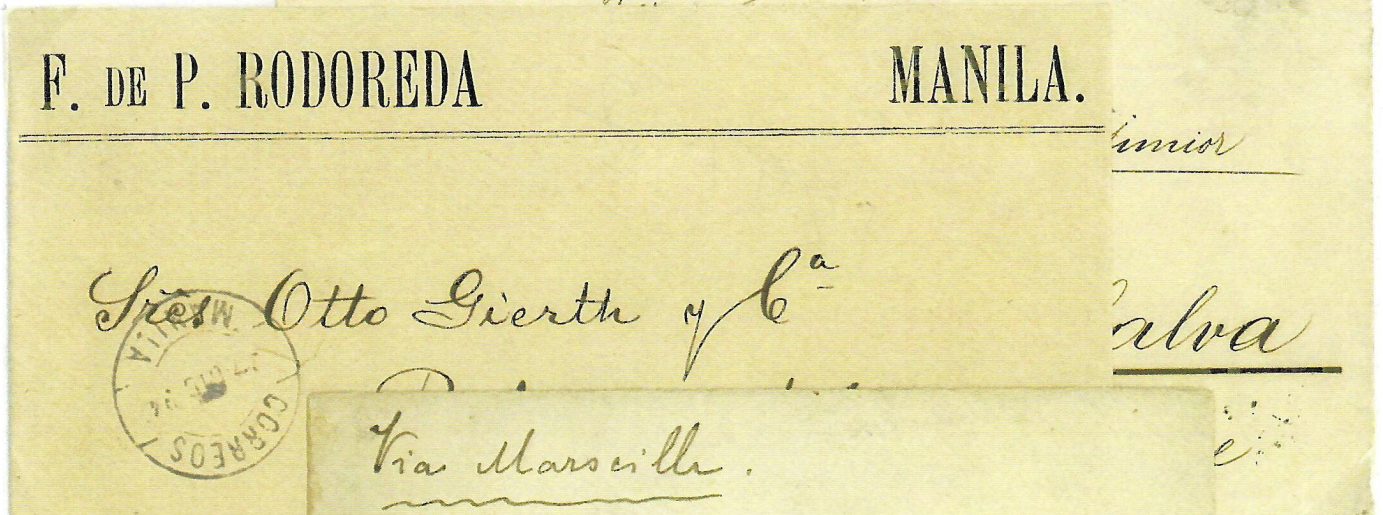 F. DE P. RODOREDA MANILA.
Sres Otto Gierth y Cª
MANILA
CORREOS
Via Marseille.